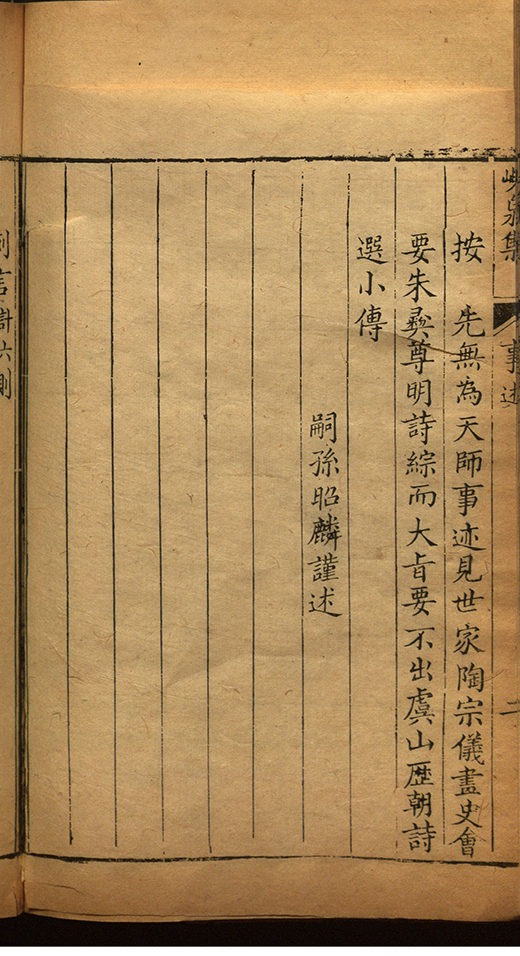 峴泉集
事述
二
按　先無為天師事迹見世家陶宗儀畫史會
要朱彞尊明詩綜而大旨要不出虞山歷朝詩
選小傳
嗣孫昭麟謹述
例言計六則